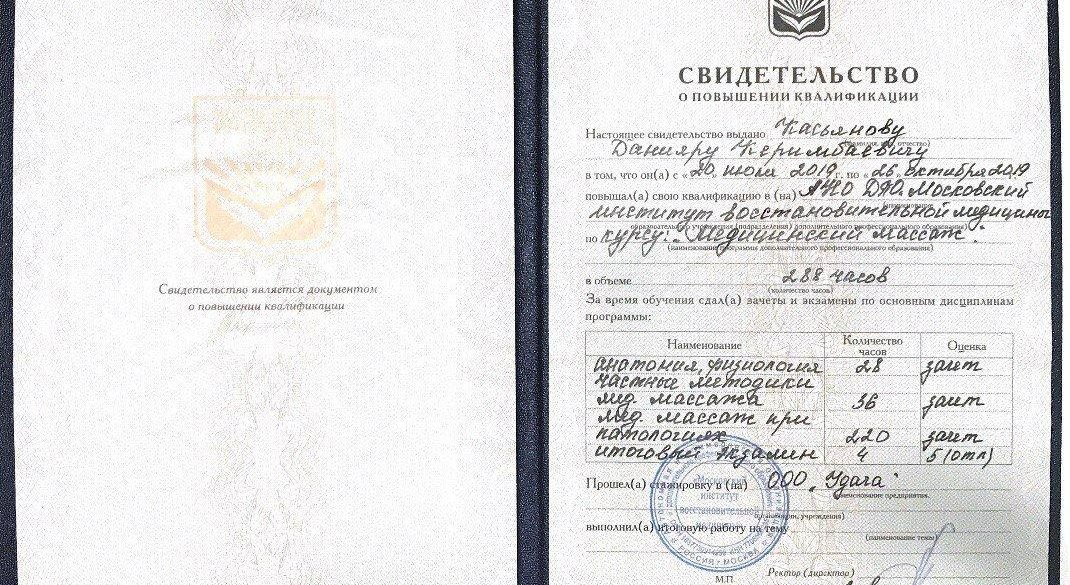 Свидетельство является документом
о повышении квалификации
СВИДЕТЕЛЬСТВО
О ПОВЫШЕНИИ КВАЛИФИКАЦИИ
Настоящее свидетельство выдано Касьянову
Данияру Керимбаевичу
в том, что он(а) с «20 июля 2019 г. по «26» октября 2019
повышал(а) свою квалификацию в (на) АНО ДПО. Московский
(наименование
институт восстановительной медицины
образовательного учреждения (подразделения) дополнительного профессионального образования)
по курсу: "Медицинский массаж".
(наименование программы дополнительного профессионального образования)
в объеме 288 часов
(количество часов)
За время обучения сдал(а) зачеты и экзамены по основным дисциплинам
программы:
Наименование Количество часов Оценка
анатомия, физиология 28 зачет
частные методики
мед. массажа 36 зачет
мед. массаж при
патологиях 220 зачет
итоговый экзамен 4 5 (отл)
Прошел(а) стажировку в (на) ООО "Удача"
(наименование предприятия,
организации, учреждения)
выполнил(а) итоговую работу на тему
(наименование темы)
«Московский
институт
восстановительной
РОССИЯ * МОСКВА
Ректор (директор)
М.П.